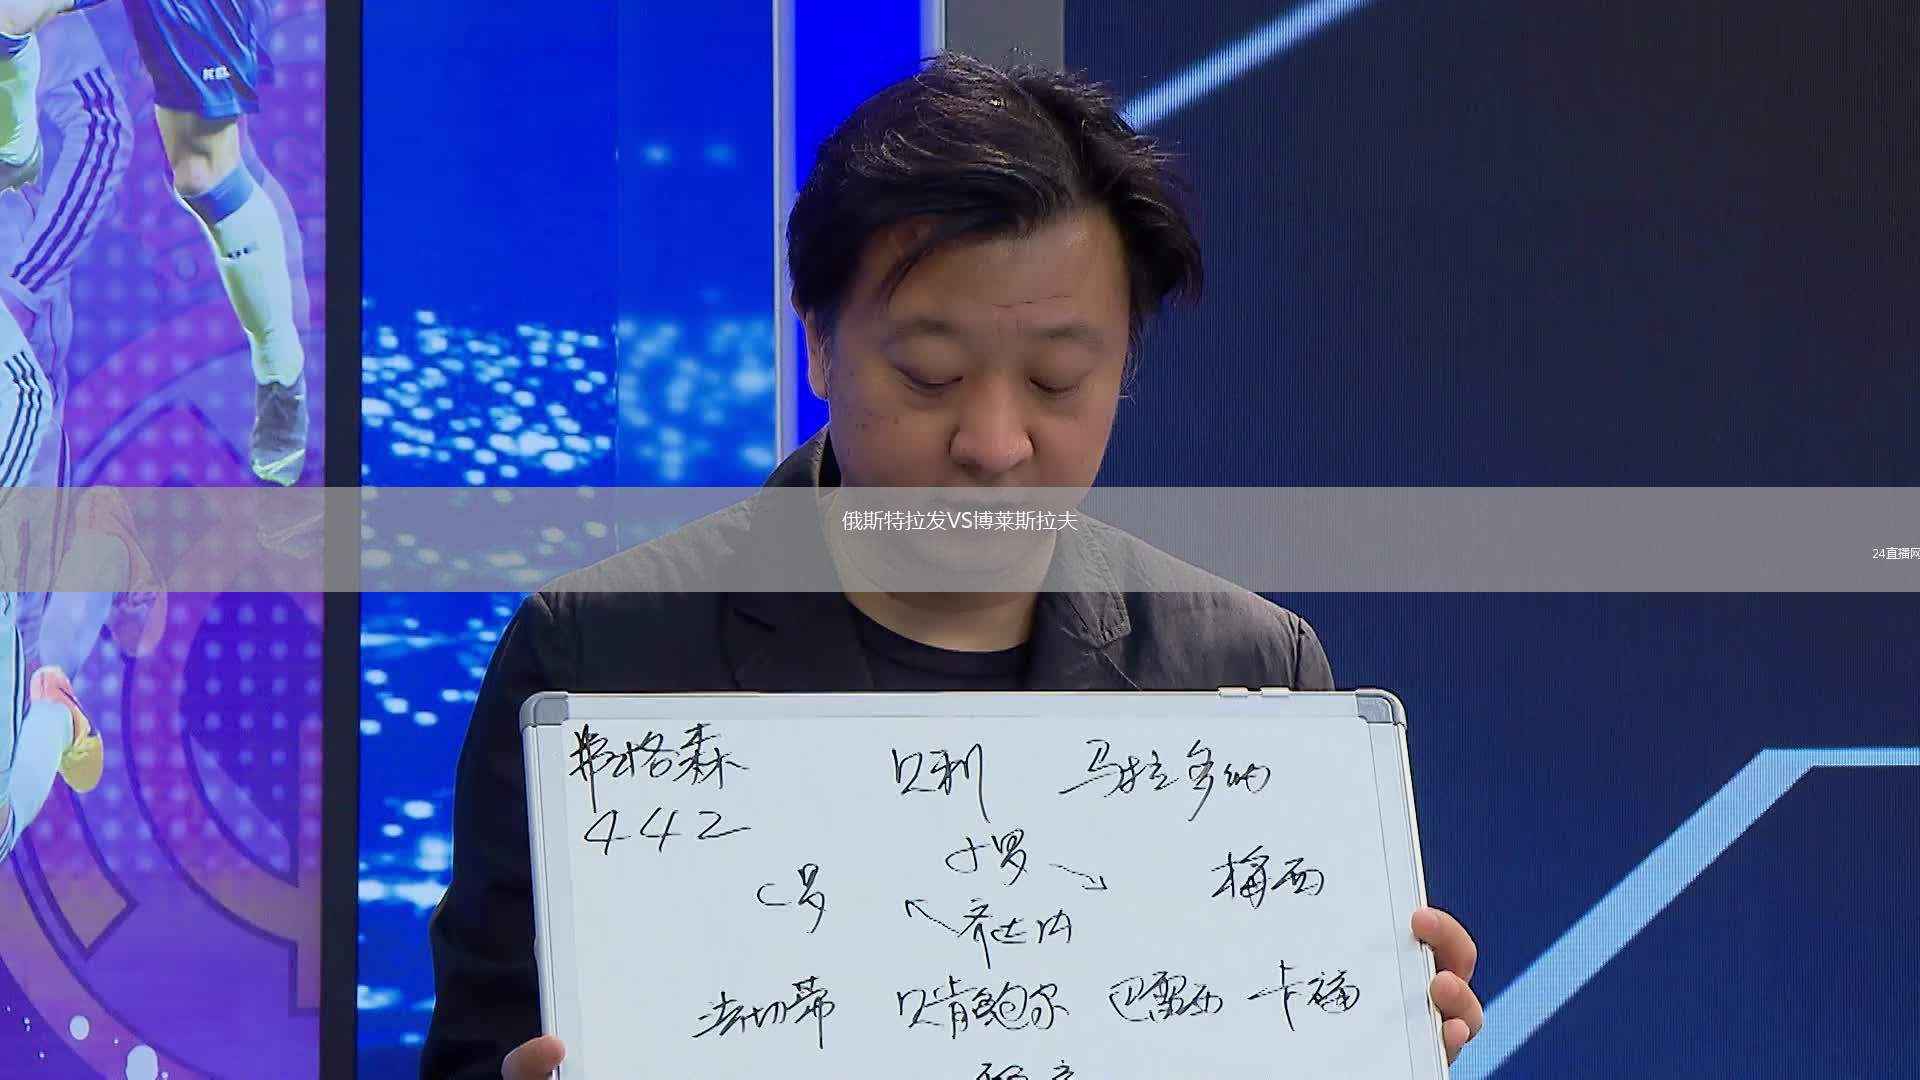 KEL
俄斯特拉发VS博莱斯拉夫
24直播网
弗格森
442
贝利 马拉多纳
小罗
C罗
梅西
齐达内
法切蒂 贝肯鲍尔 巴雷西 卡福